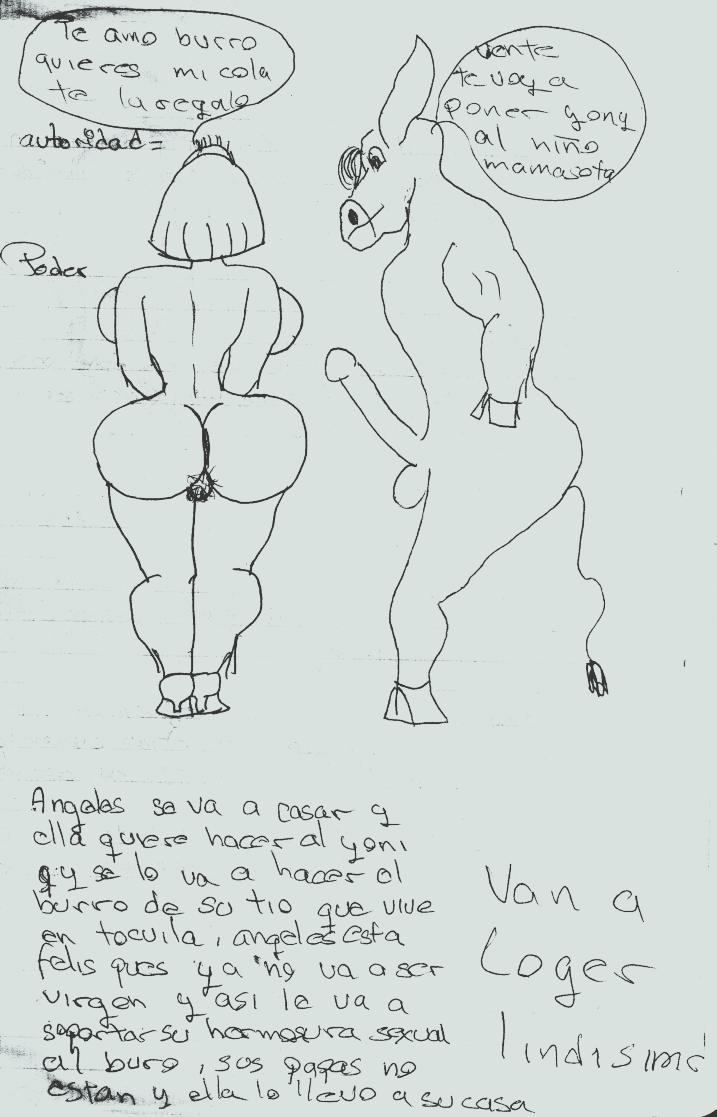 Te amo burro
quieres mi cola
te la regalo
vente
te voy a
poner yony
al niño
mamasota
autoridad =
Poder
Angeles se va a casar y
ella quiere hacer al yoni
y se lo va a hacer el
burro de su tio que vive
en tocuila, angeles esta
felis pues ya no va a ser
virgen y asi le va a
soportar su hermosura sexual
al buro, sus papas no
estan y ella lo llevo a su casa
Van a
Coger
lindisimo